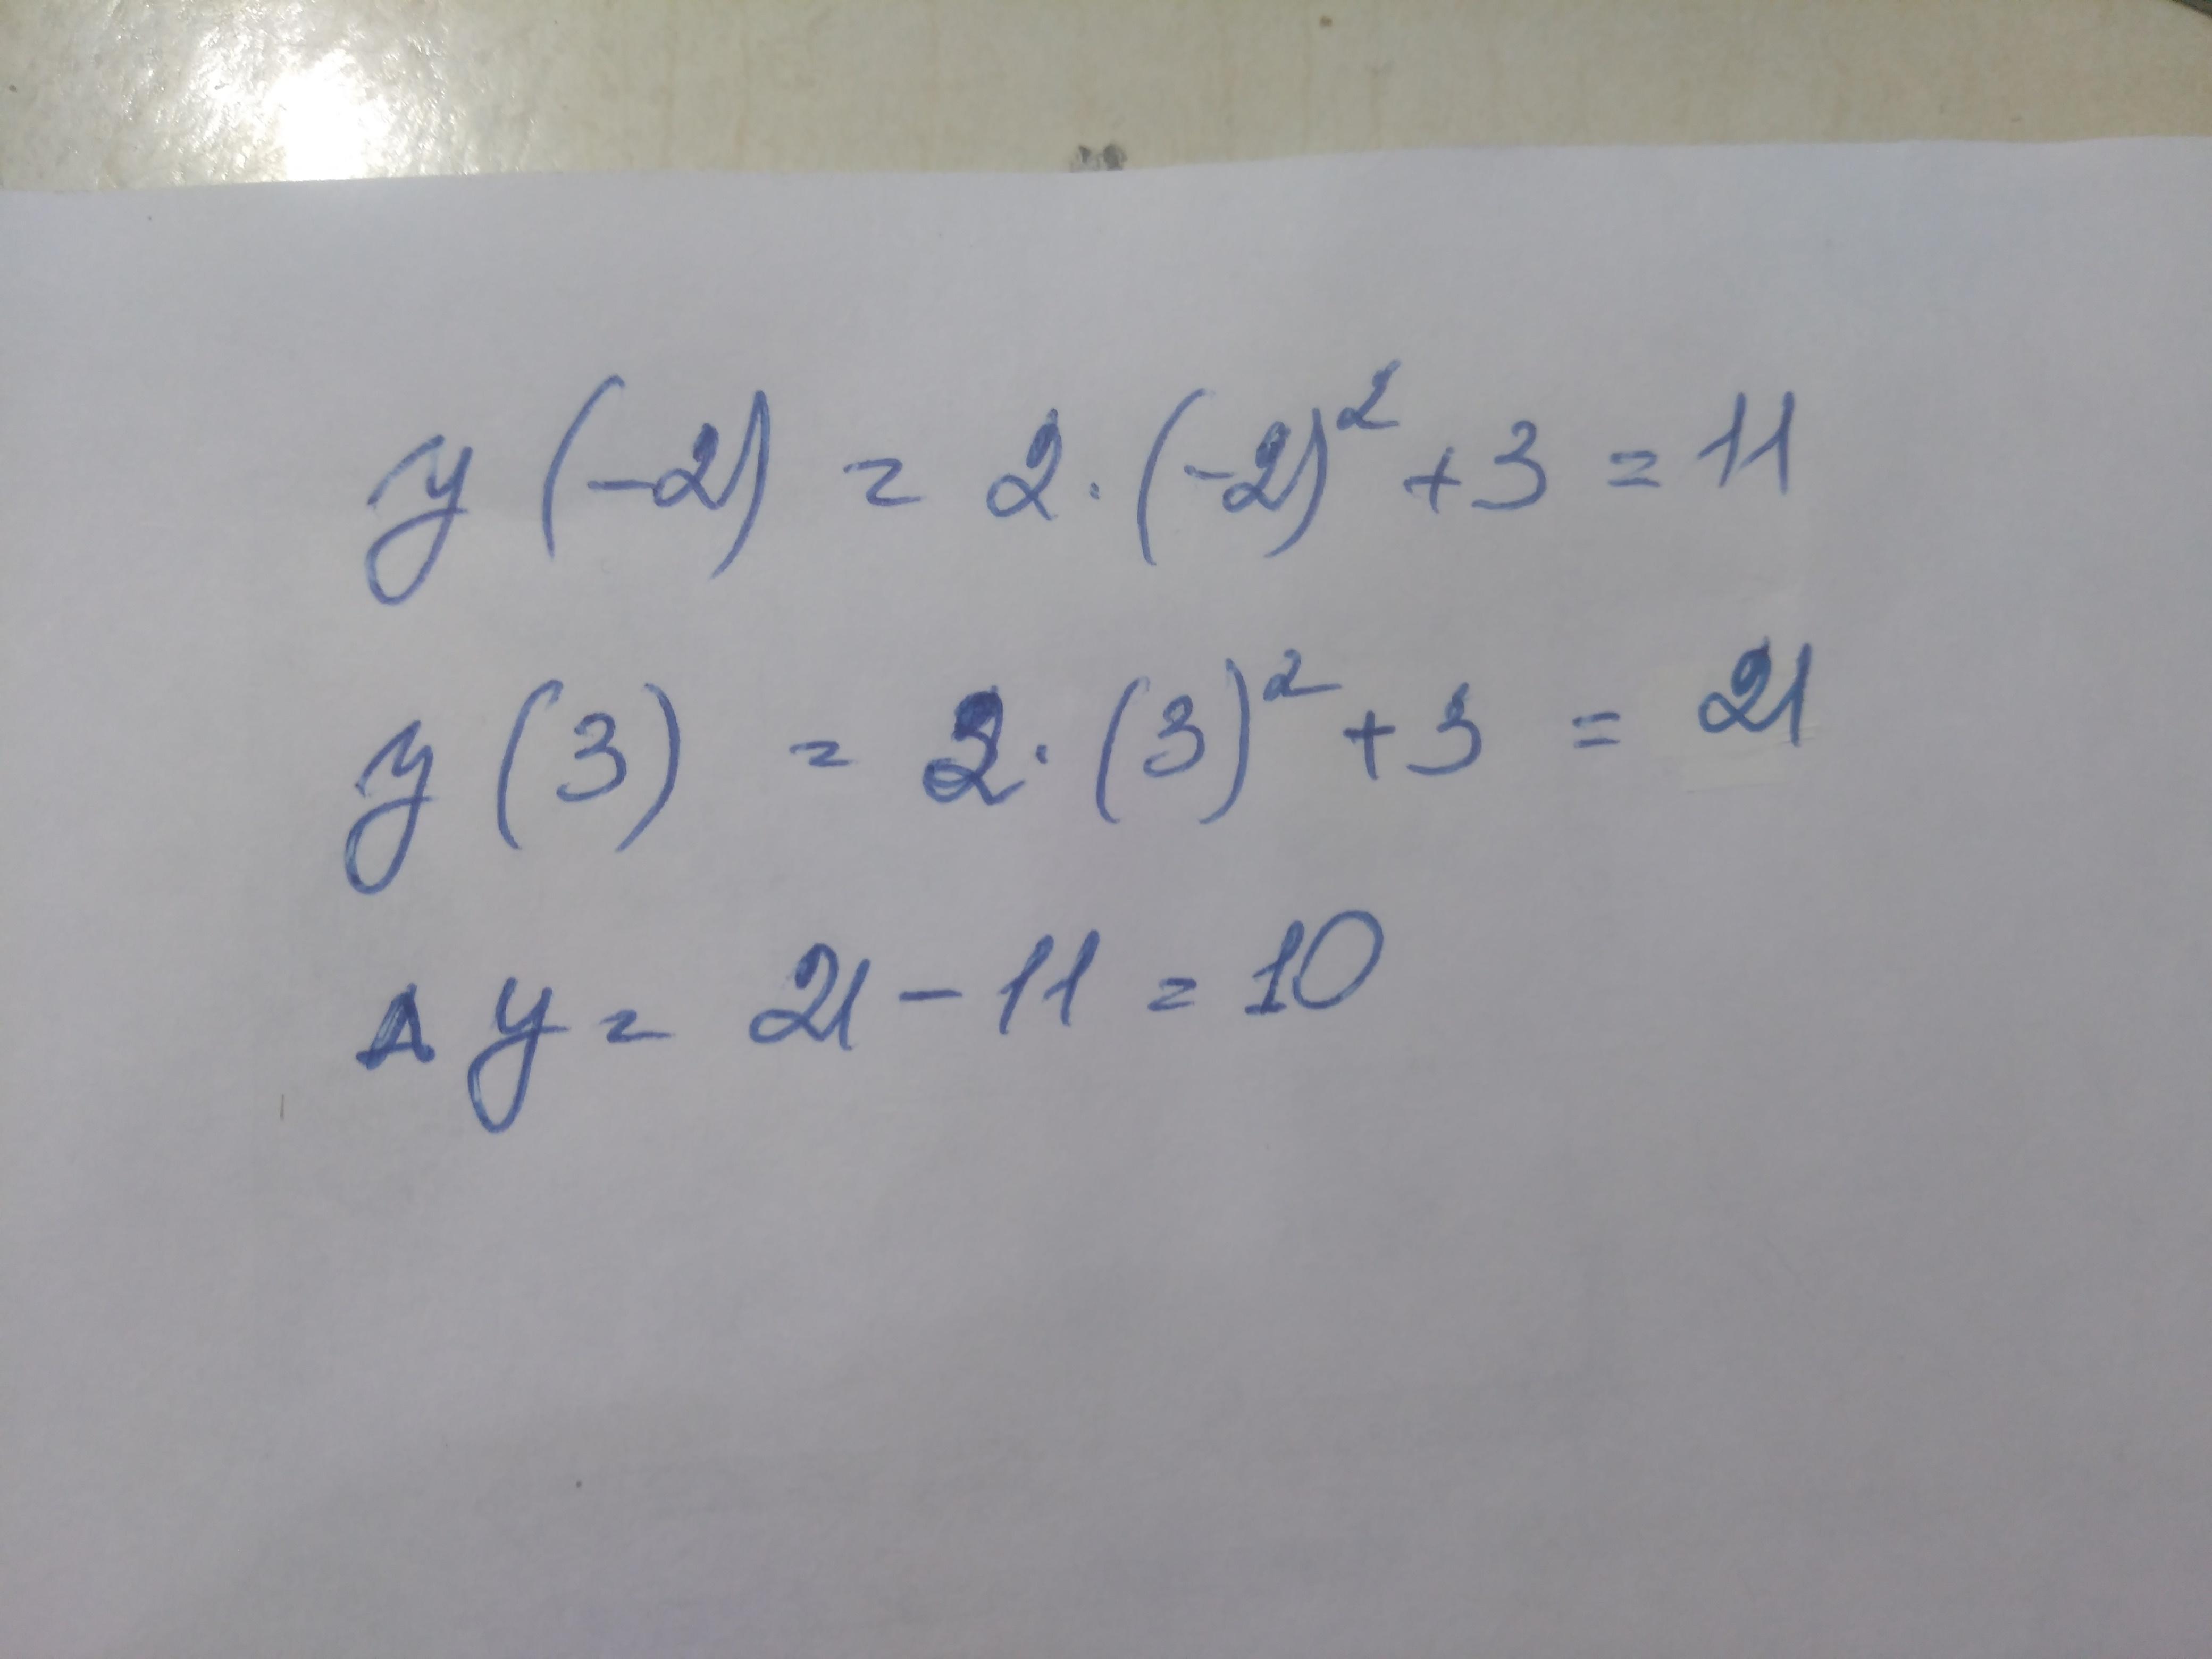 y (-2) = 2 · (-2)² + 3 = 11
y (3) = 2 · (3)² + 3 = 21
Δ y = 21 - 11 = 10